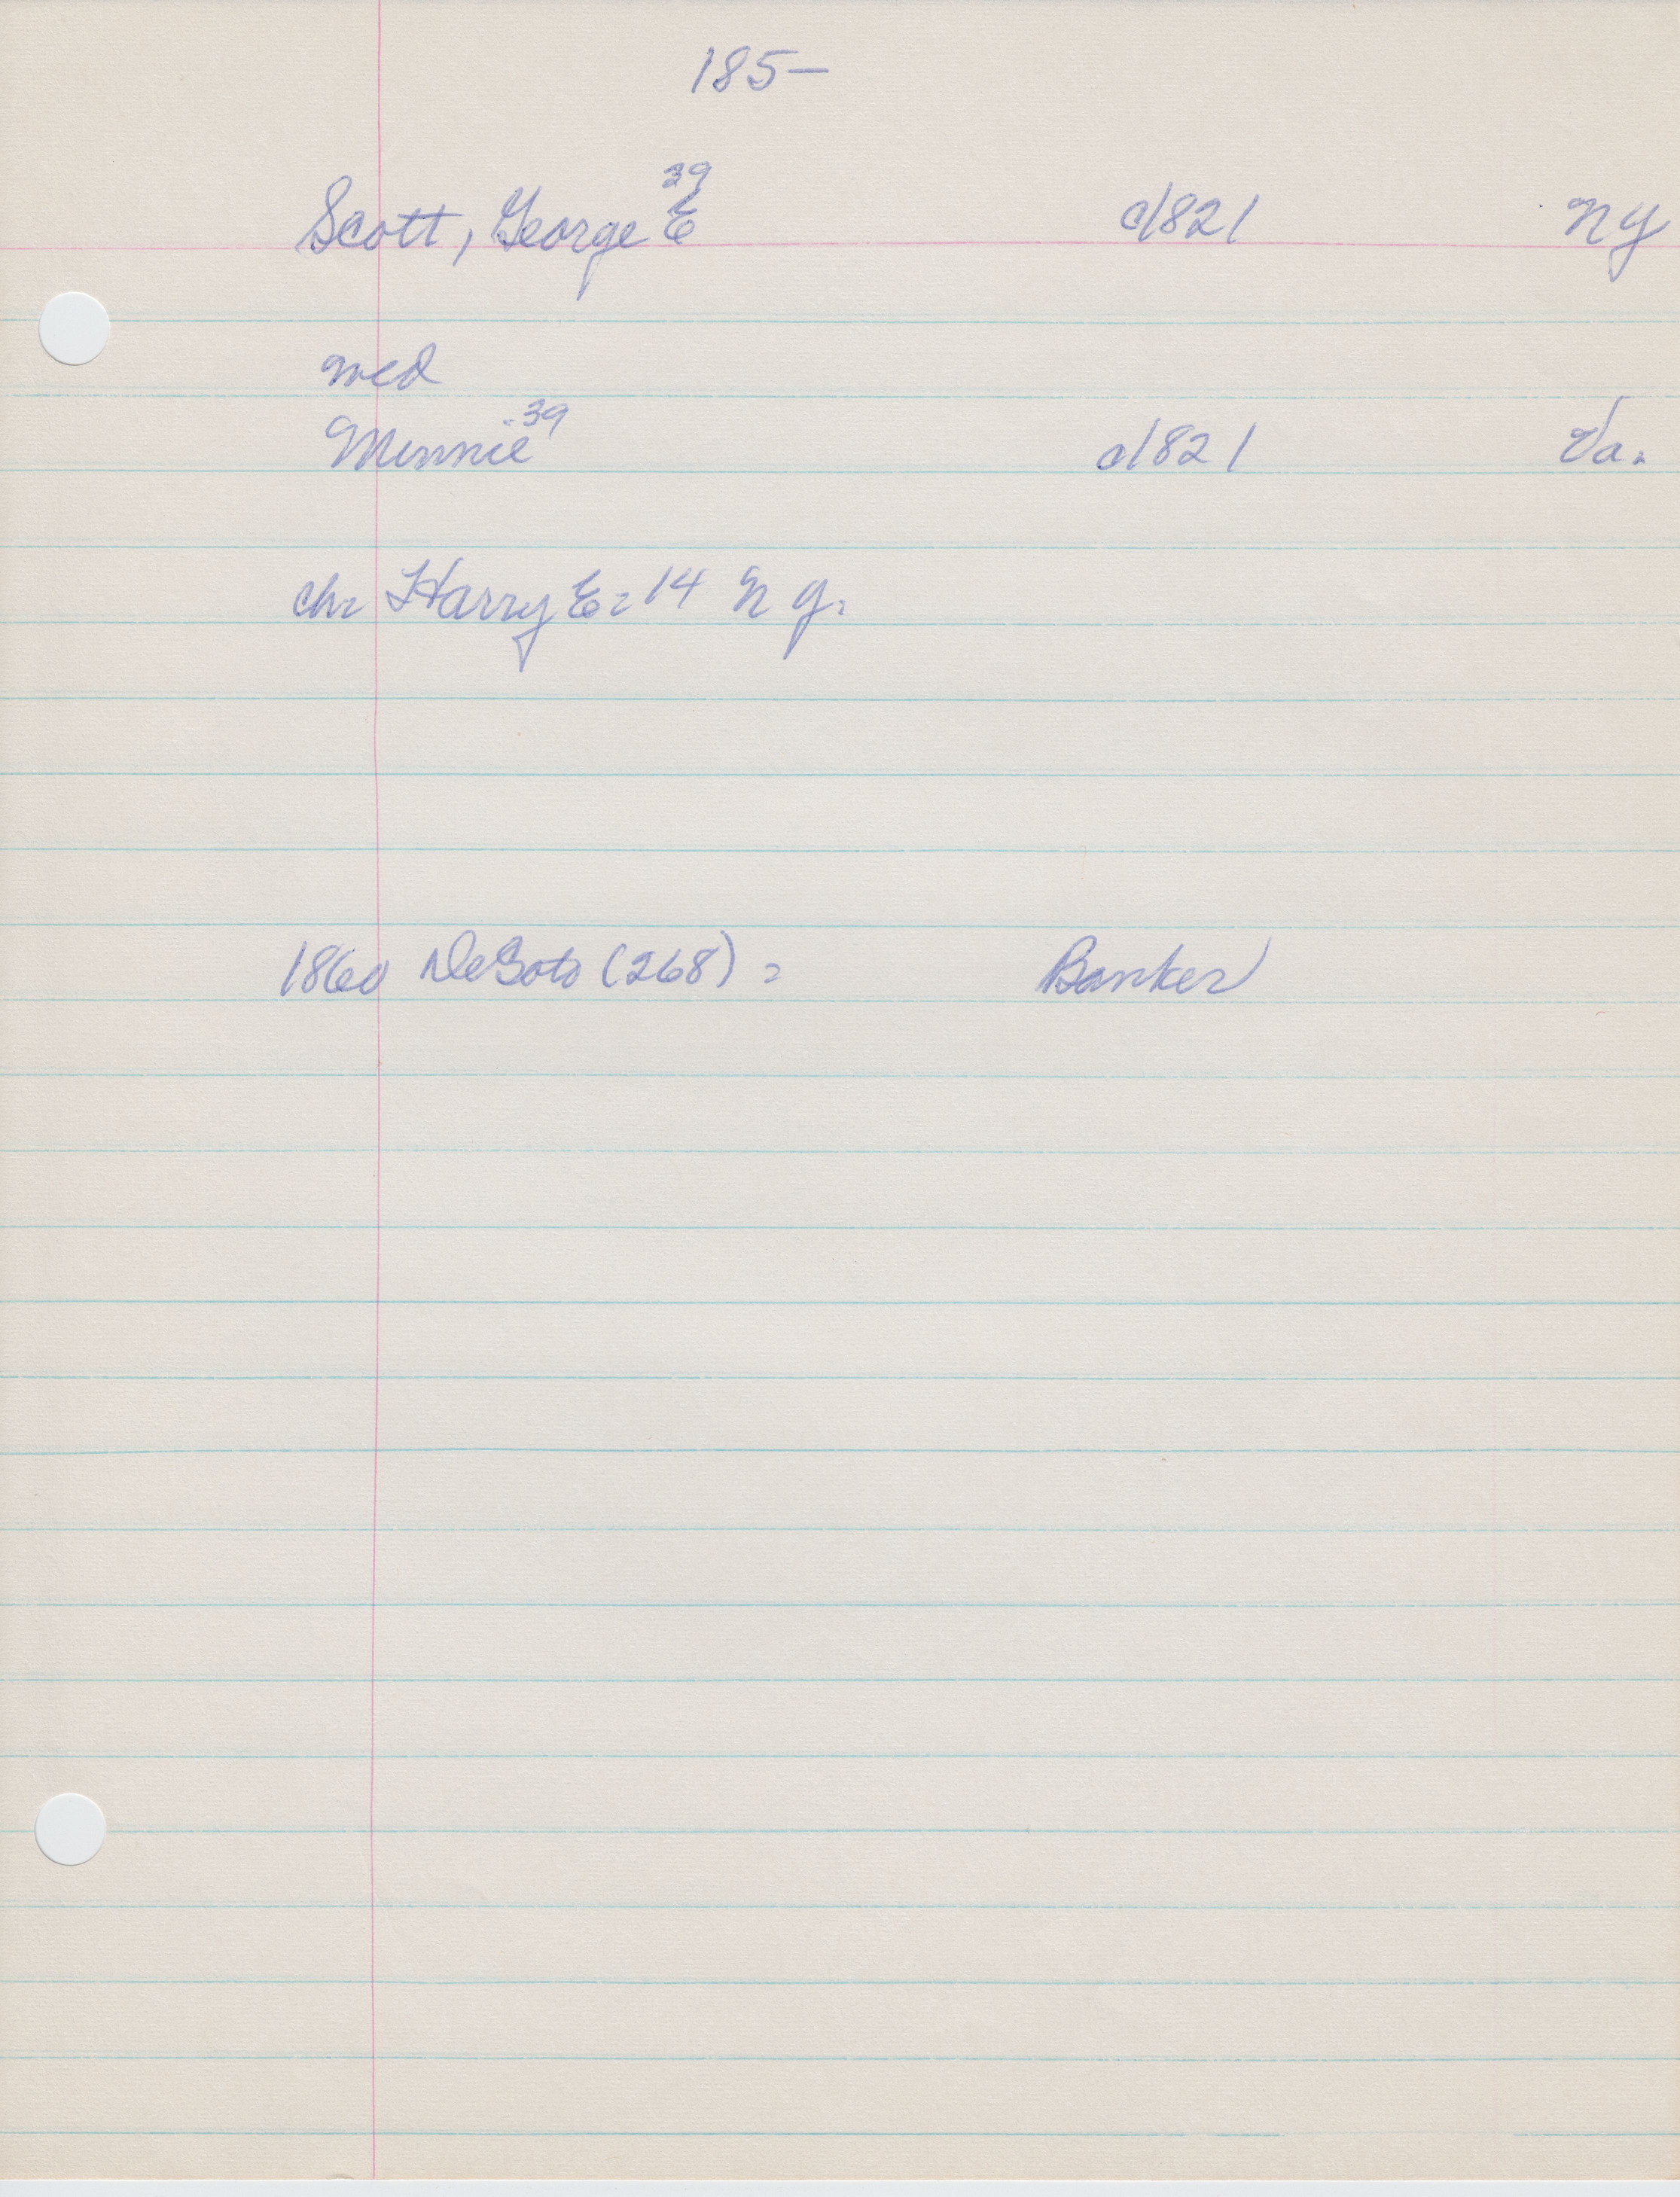 185—
Scott, George E 39 c1821 NY
med
Minnie 39 c1821 Va.
ch- Harry E- 14 N Y.
1860 DeSoto (268) - Banker